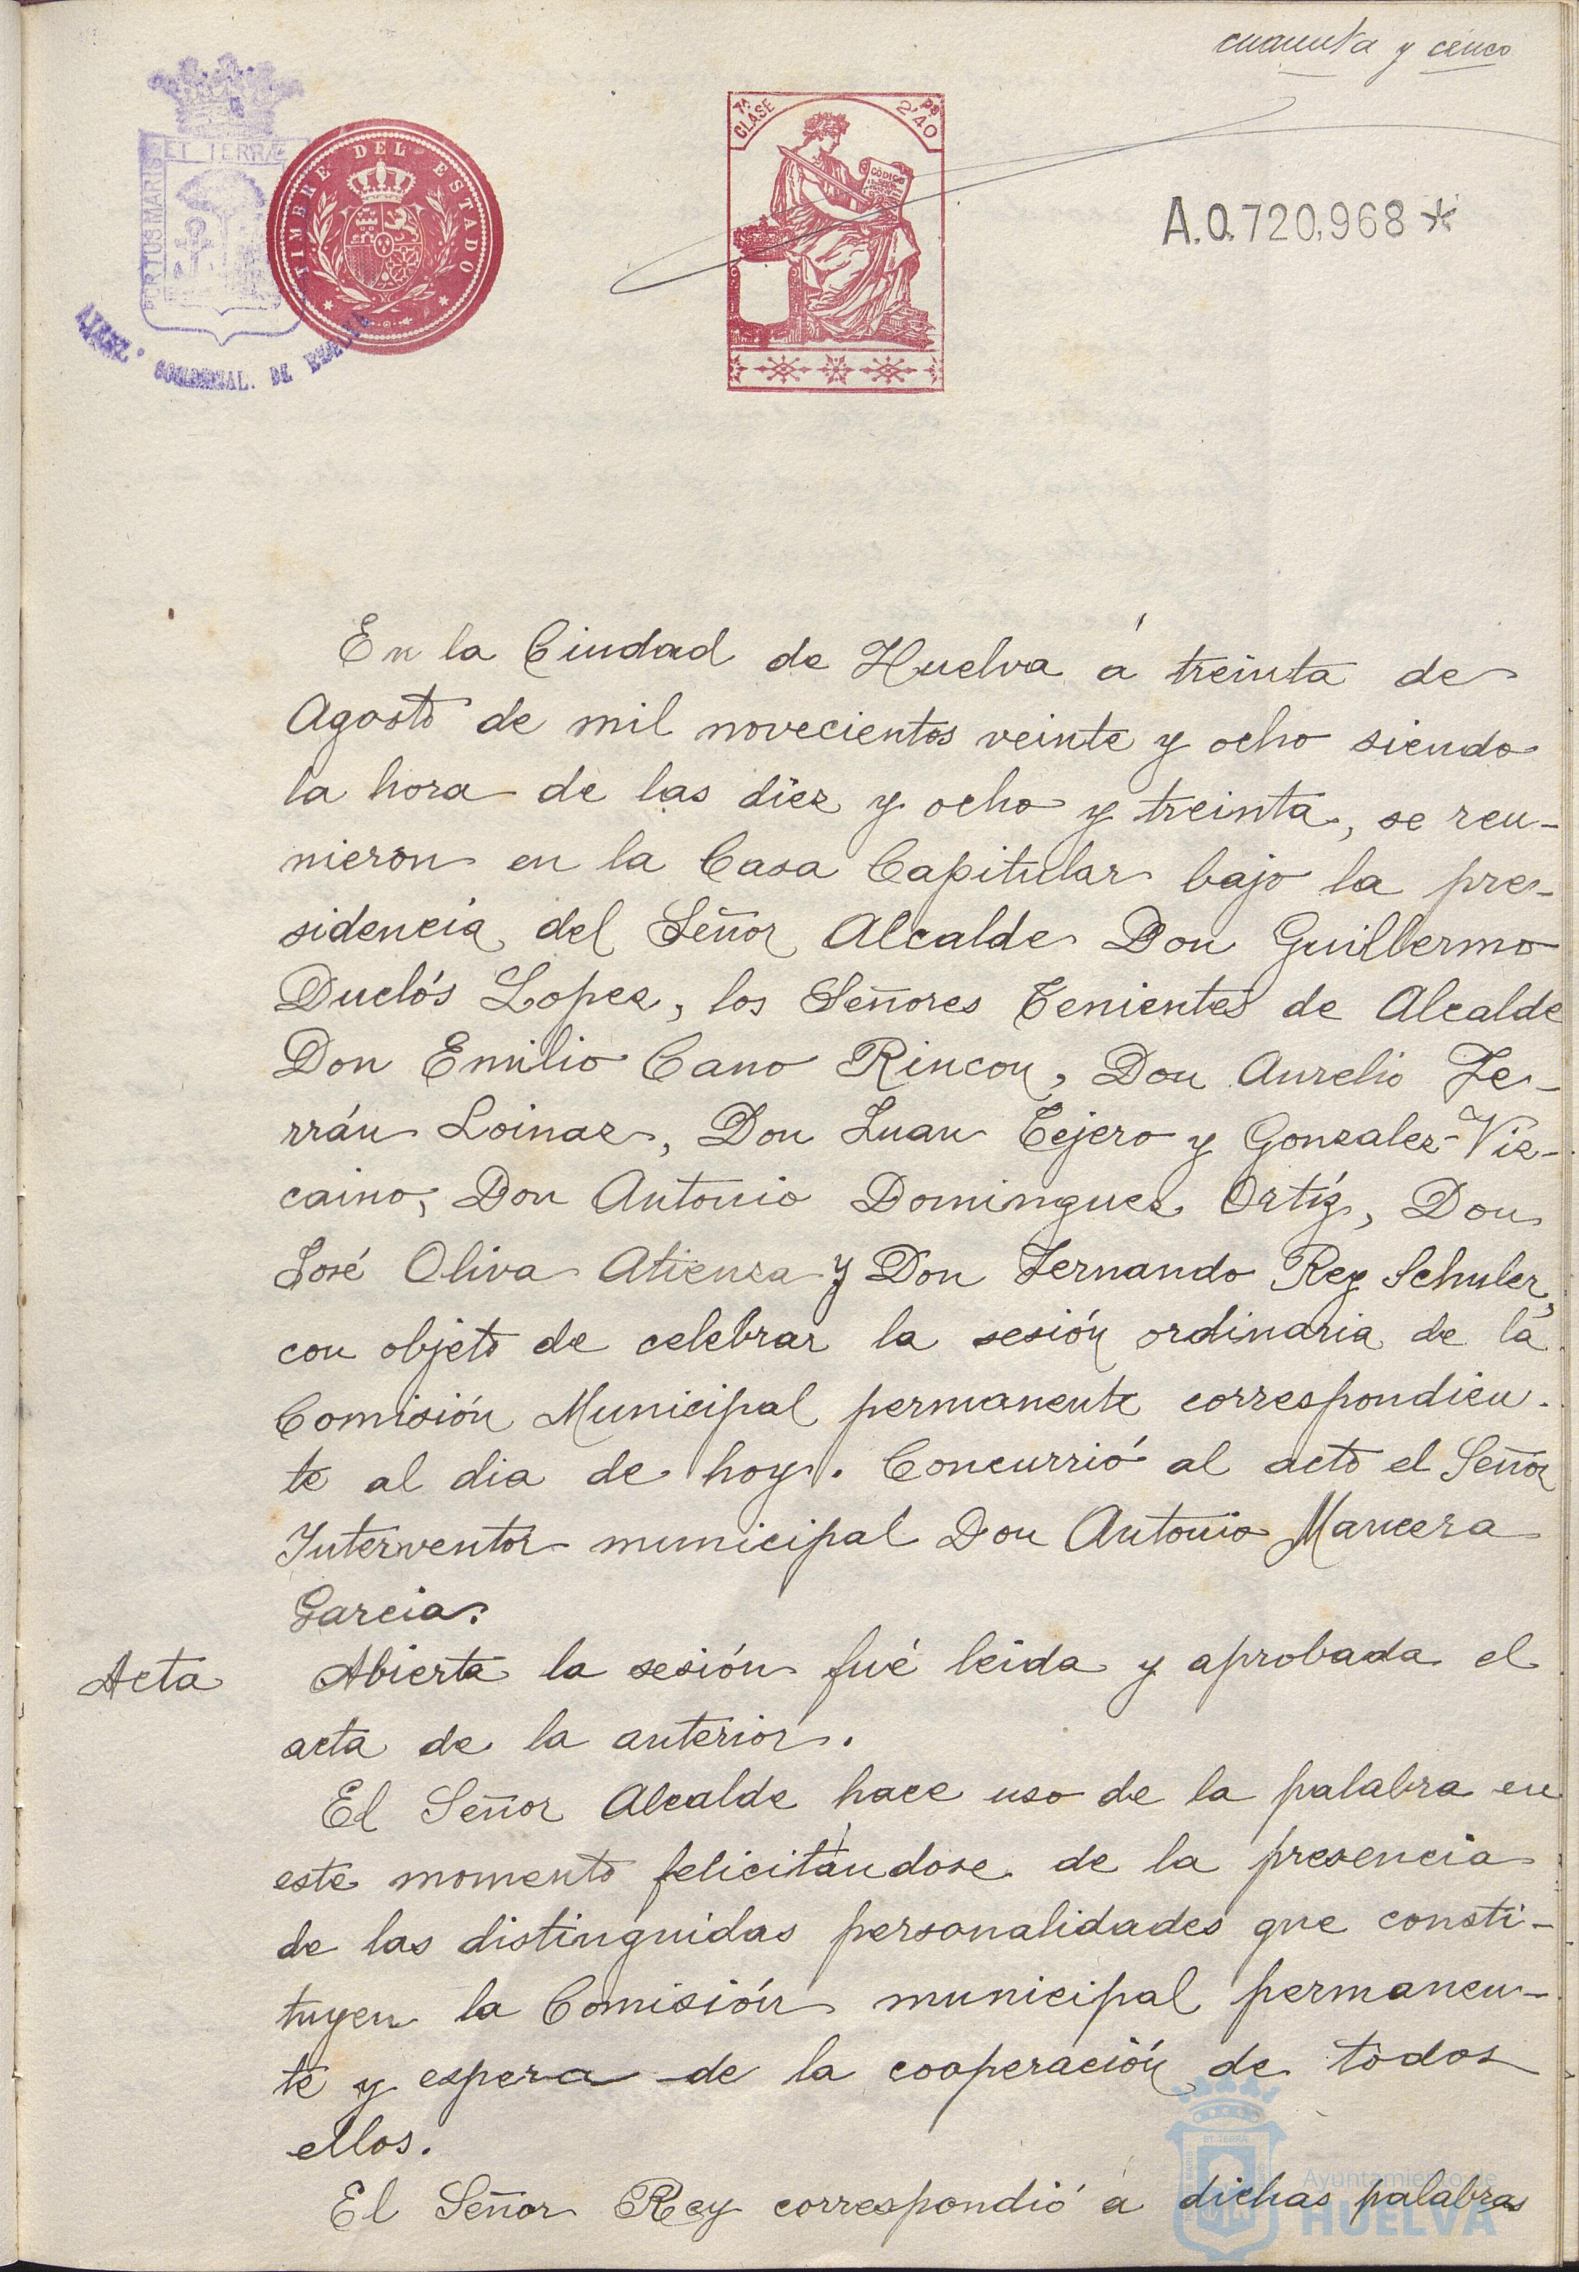 cuarenta y cinco
ET TERRÆ
PORTUS MARIS
TIMBRE DEL ESTADO
DE HUELVA
7ª CLASE
2'40 PS
CÓDIGO
A.0.720,968*
En la Ciudad de Huelva á treinta de
Agosto de mil novecientos veinte y ocho siendo
la hora de las diez y ocho y treinta, se reu-
nieron en la Casa Capitular bajo la pre-
sidencia del Señor Alcalde Don Guillermo
Duclós Lopez, los Señores Tenientes de Alcalde
Don Emilio Cano Rincon, Don Aurelio Te-
rrán Loinaz, Don Juan Tejero y Gonzalez-Viz-
caino, Don Antonio Dominguez Ortíz, Don
José Oliva Atienza y Don Fernando Rey Schuler,
con objeto de celebrar la sesión ordinaria de la
Comisión Municipal permanente correspondien-
te al dia de hoy. Concurrió al acto el Señor
Interventor municipal Don Antonio Mancera
Garcia.
Acta Abierta la sesión fué leida y aprobada el
acta de la anterior.
El Señor Alcalde hace uso de la palabra en
este momento felicitándose de la presencia
de las distinguidas personalidades que consti-
tuyen la Comisión municipal permanen-
te y espera de la cooperación de todos
ellos.
El Señor Rey correspondió á dichas palabras
Ayuntamiento de
HUELVA